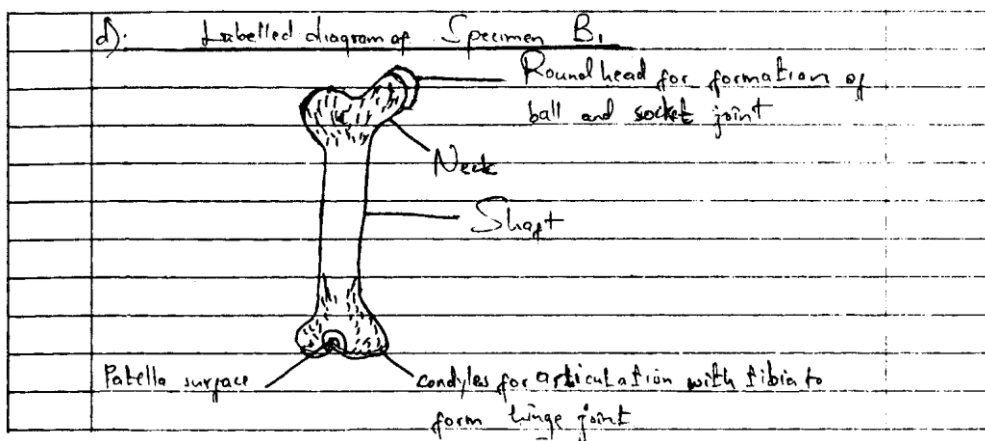 d). Labelled diagram of Specimen B1
Round head for formation of
ball and socket joint
Neck
Shaft
Patella surface
condyles for articulation with tibia to
form hinge joint